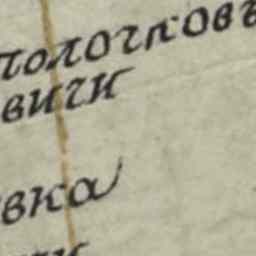 толочковъ
вичи
вка